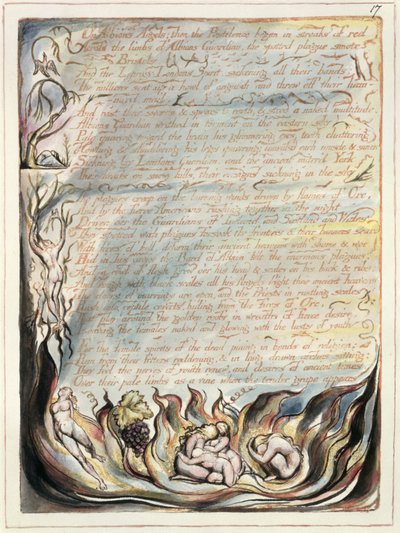 17
On Albions Angels; then the Pestilence began in streaks of red
Across the limbs of Albions Guardian, the spotted plague smote
Bristols
And the Leprous Londons Spirit, sickening all their bands:
The millions sent up a howl of anguish and threw off their ham-
-merd mail,
And cast their swords & spears to earth, & stood a naked multitude.
Albions Guardian writhed in torment on the eastern sky
Pale quivring toward the brain his glimmering eyes, teeth chattering
Howling & shuddering his legs quivering; convuls'd each muscle & sinew
Sick'ning lay Londons Guardian, and the ancient miter'd York
Their heads on snowy hills, their ensigns sick'ning in the sky
The plagues creep on the burning winds driven by flames of Orc,
And by the fierce Americans rushing together in the night
Driven o'er the Guardians of Ireland and Scotland and Wales
They spotted with plagues forsook the frontiers & their banners seard
With fires of hell, deform their ancient heavens with shame & woe.
Hid in his caves the Bard of Albion felt the enormous plagues,
And a cowl of flesh grew o'er his head & scales on his back & ribs;
And rough with black scales all his Angels fright their ancient heavens
The doors of marriage are open, and the Priests in rustling scales
Rush into reptile coverts, hiding from the fires of Orc,
That play around the golden roofs in wreaths of fierce desire,
Leaving the females naked and glowing with the lusts of youth
For the female spirits of the dead pining in bonds of religion;
Run from their fetters reddening, & in long drawn arches sitting:
They feel the nerves of youth renew, and desires of ancient times,
Over their pale limbs as a vine when the tender grape appears